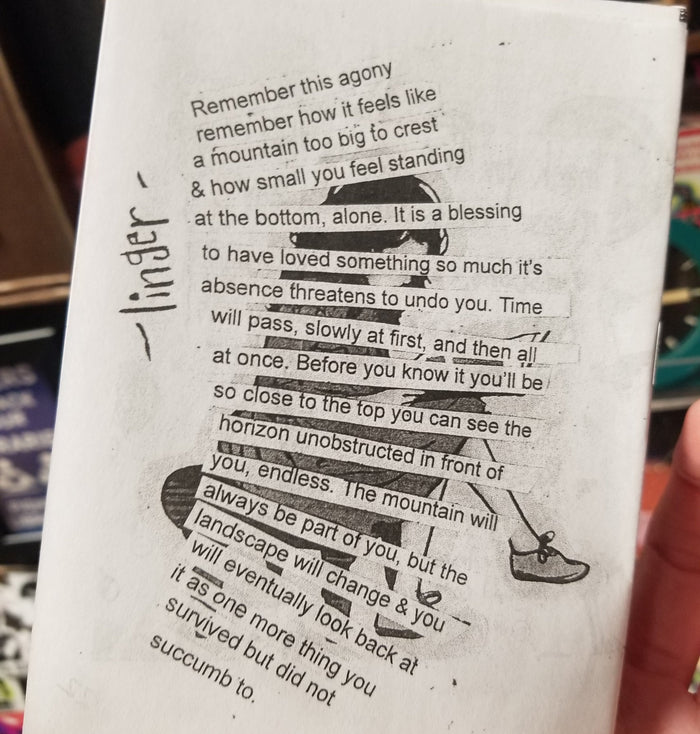 Remember this agony
remember how it feels like
a mountain too big to crest
& how small you feel standing
at the bottom, alone. It is a blessing
to have loved something so much it's
absence threatens to undo you. Time
will pass, slowly at first, and then all
at once. Before you know it you'll be
so close to the top you can see the
horizon unobstructed in front of
you, endless. The mountain will
always be part of you, but the
landscape will change & you
will eventually look back at
it as one more thing you
survived but did not
succumb to.
- linger -